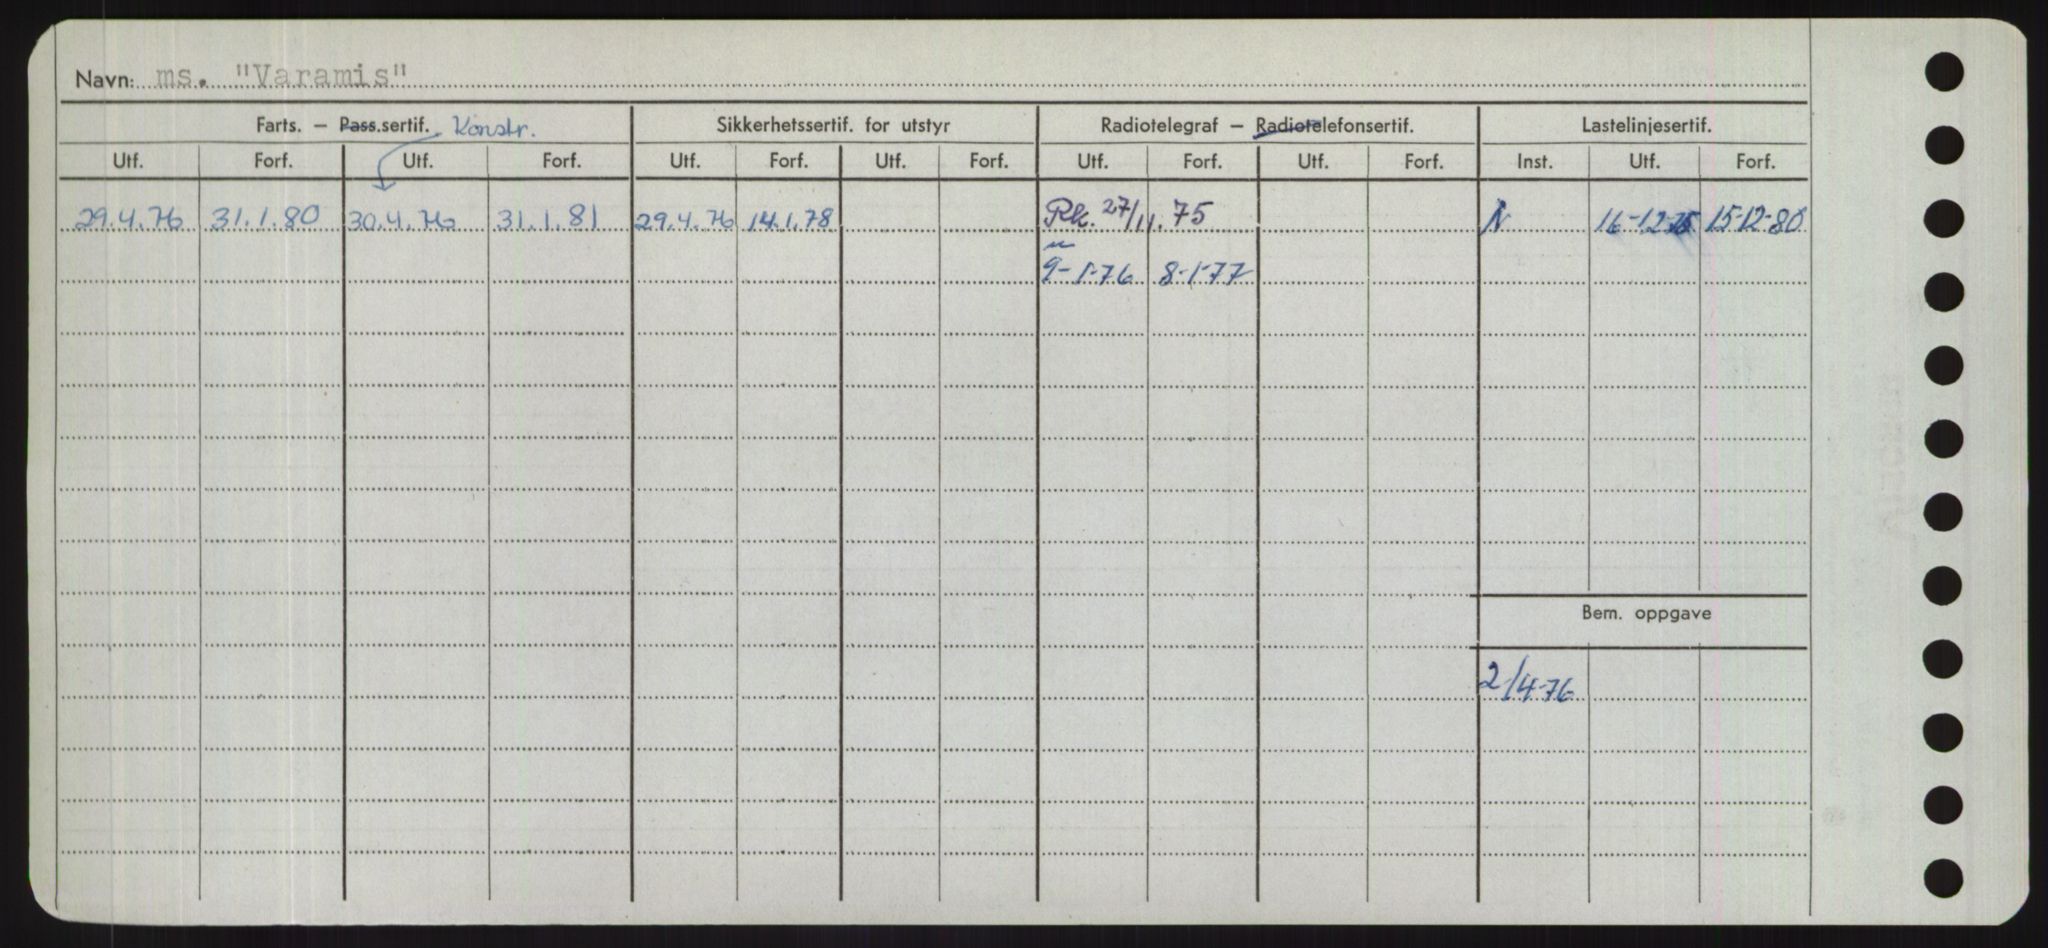 Navn: ms. "Varamis"
Farts. – Pass.sertif. Konstr. Sikkerhetssertif. for utstyr Radiotelegraf – Radiotelefonsertif. Lastelinjesertif.
Utf. Forf. Utf. Forf. Utf. Forf. Utf. Forf. Utf. Forf. Utf. Forf. Inst. Utf. Forf.
29.4.76 31.1.80 30.4.76 31.1.81 29.4.76 14.1.78 Rk. 27/11.75 N 16-12-75 15-12-80
9-1-76 8-1-77
Bem. oppgave
2/4-76